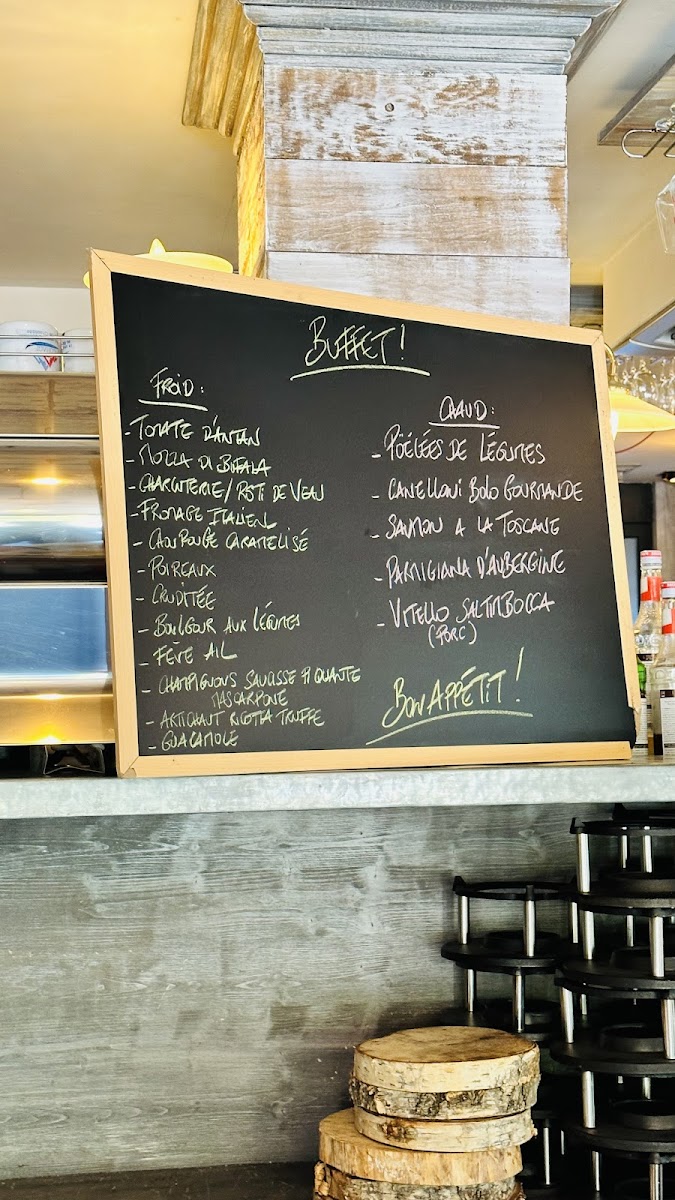 BUFFET !
FROID :
- TOMATE D'ANTAN
- MOZZA DI BUFALA
- CHARCUTERIE / ROTI DE VEAU
- FROMAGE ITALIEN
- CHOU ROUGE CARAMELISÉ
- POIREAUX
- CRUDITÉE
- BOULGOUR AUX LÉGUMES
- FÈVE AIL
- CHAMPIGNONS SAUCISSE PIQUANTE
MASCARPONE
- ARTICHAUT RICOTTA TRUFFE
- GUACAMOLE
CHAUD :
- POËLÉES DE LÉGUMES
- CANELLONI BOLO GOURMANDE
- SAUMON A LA TOSCANE
- PARMIGIANA D'AUBERGINE
- VITELLO SALTIMBOCCA
(PORC)
BON APPÉTIT !